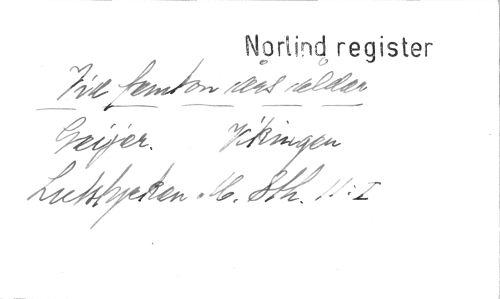 Norlind register
Vid femton års ålder
Geijer. Vikingen
Luthstycken M. Sth. N:I